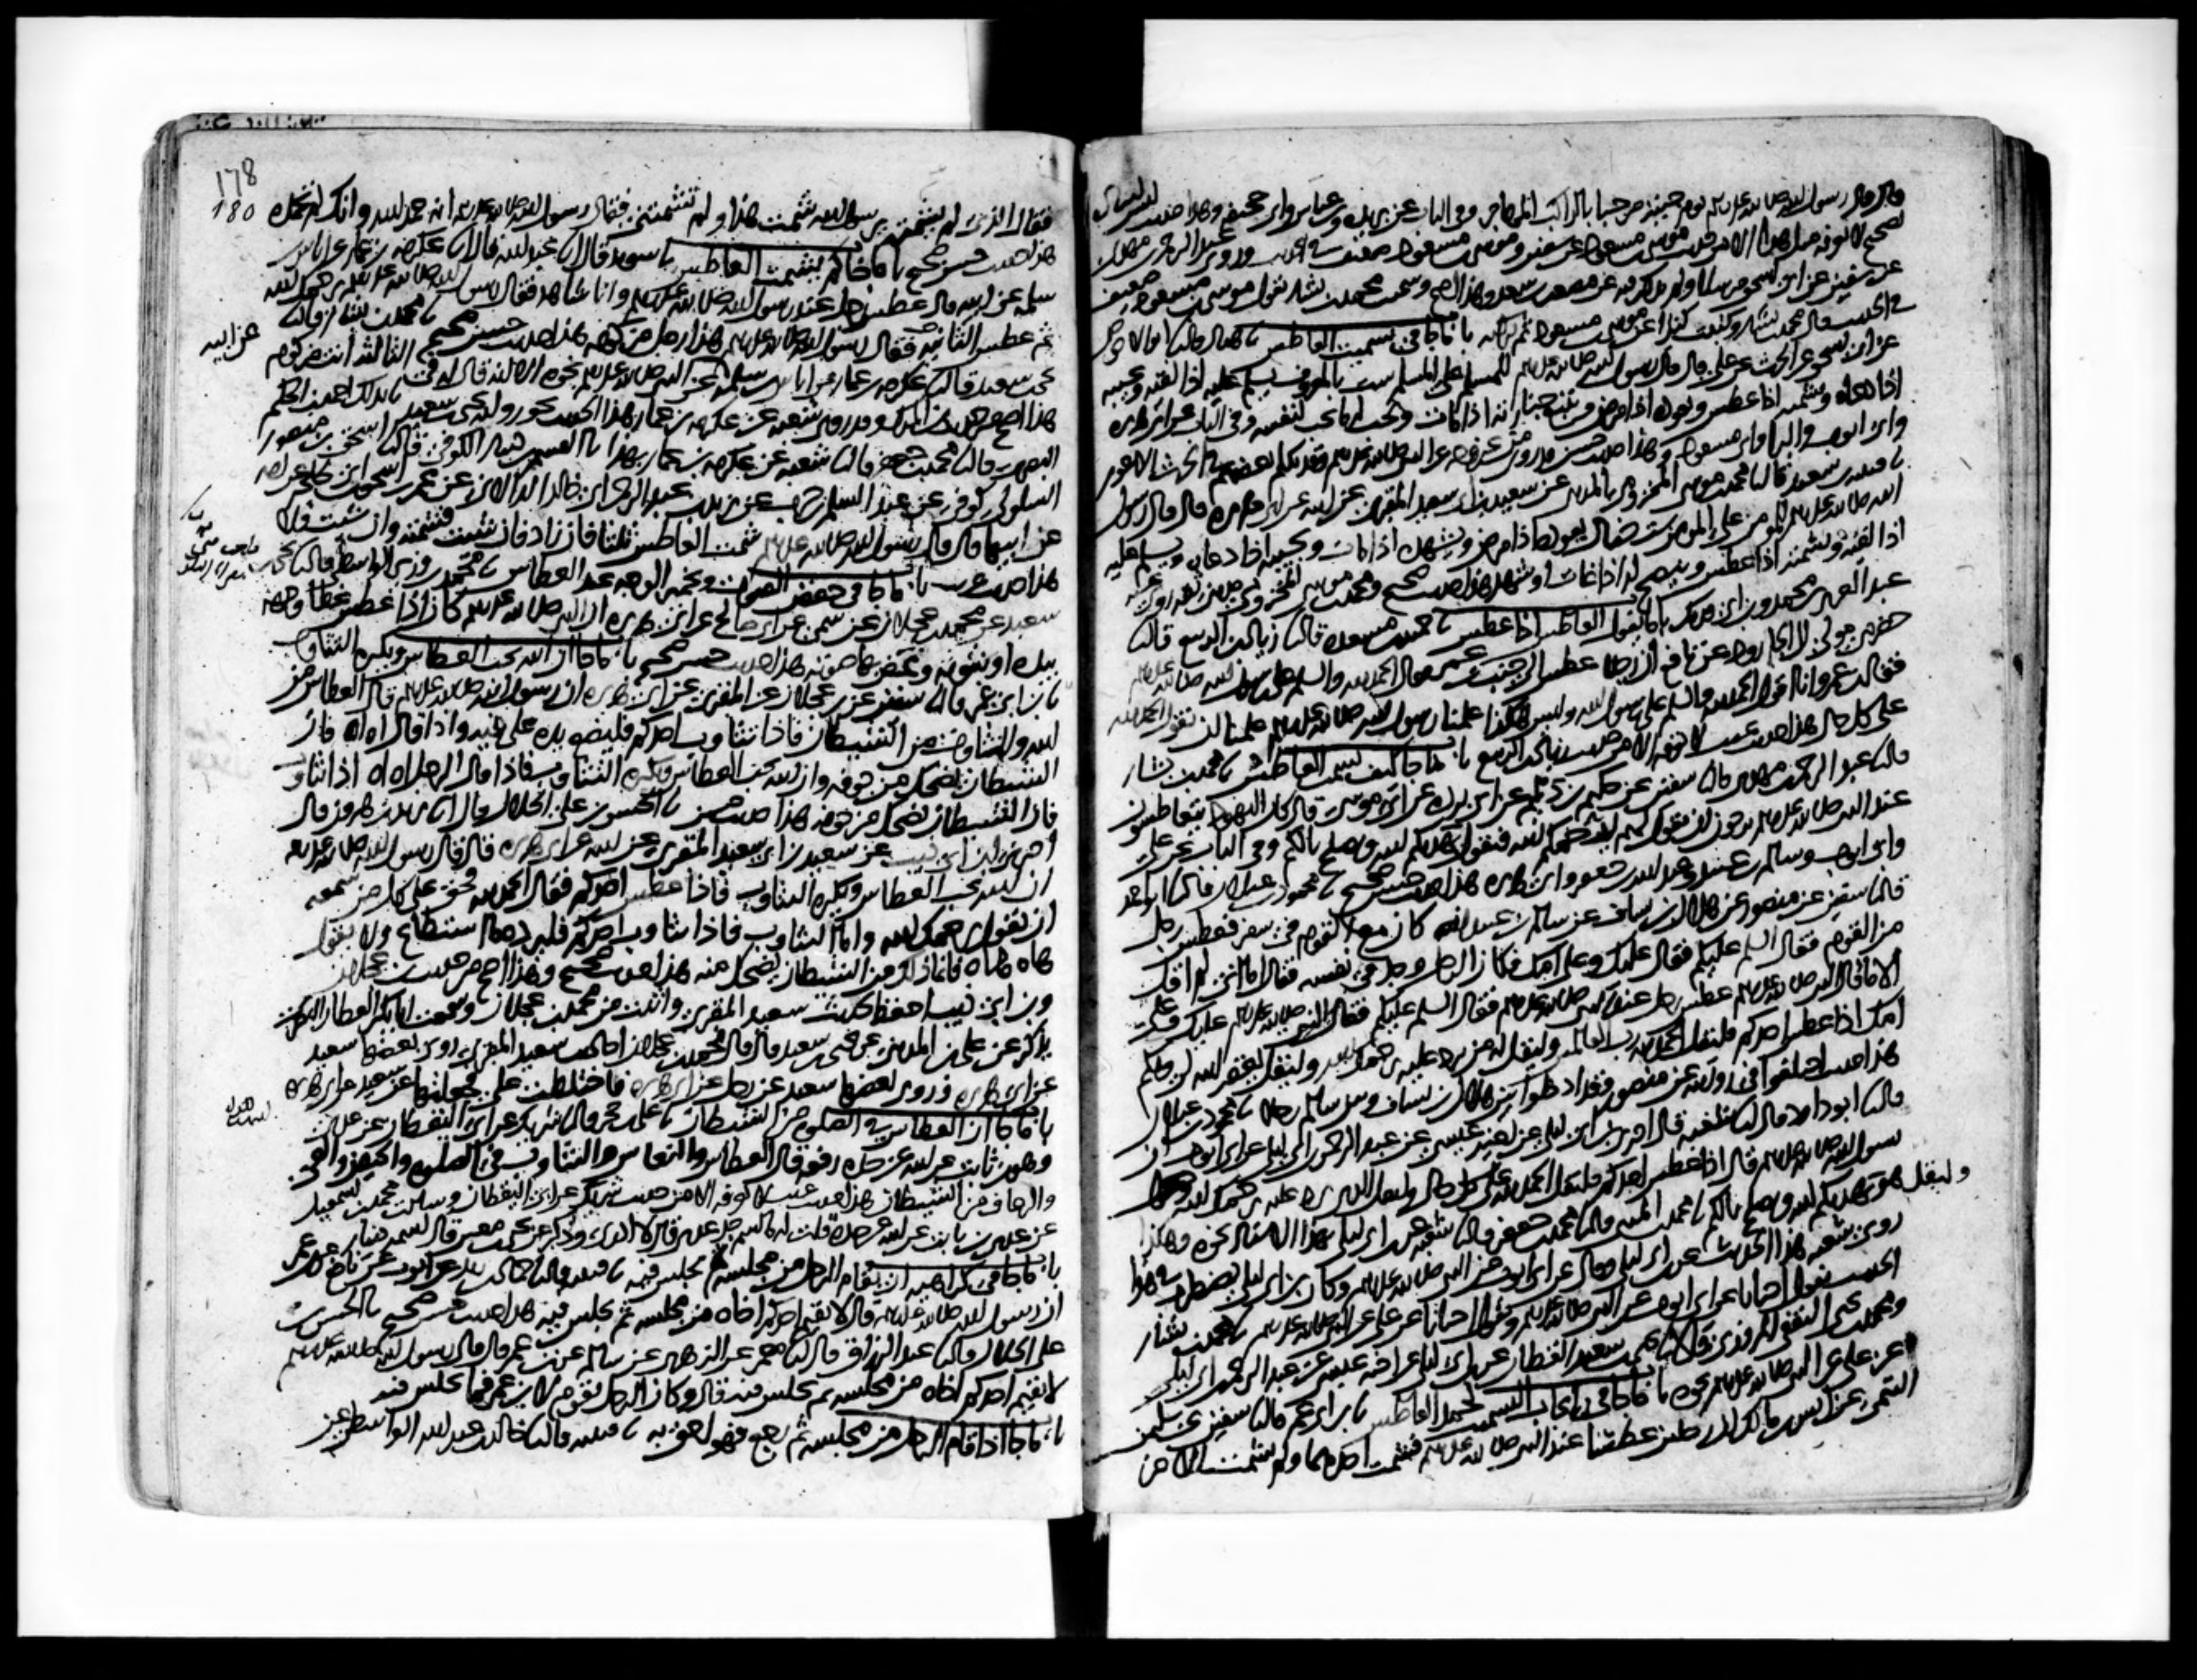 قال قال رسول الله صلى الله عليه وسلم يوم جئته مرحبا بالراكب المهاجر وفي الباب عن بريدة وابن عباس وابي جحيفة وهذا حديث ليس اسناده
بصحيح لا نعرفه مثل هذا الا من حديث موسى بن مسعود عن سفين وموسى بن مسعود ضعيف في الحديث وروى عبد الرحمن بن مهدي
عن سفين عن ابي اسحق مرسلا ولم يذكر فيه عن مصعب بن سعد وهذا اصح وسمعت محمد بن بشار يقول موسى بن مسعود ضعيف
في الحديث قال محمد بن بشار وكتبت كثيرا عن موسى بن مسعود ثم تركته باب ما جا في تشميت العاطس نا هناد قال نا ابو الاحوص
عن ابي اسحق عن الحرث عن علي قال قال رسول الله صلى الله عليه وسلم للمسلم على المسلم ست بالمعروف يسلم عليه اذا لقيه ويجيبه
اذا دعاه ويشمته اذا عطس ويعوده اذا مرض ويتبع جنازته اذا مات ويحب له ما يحب لنفسه وفي الباب عن ابي هريرة
وابي ايوب والبرا وابي مسعود وهذا حديث حسن قد روي من غير وجه عن النبي صلى الله عليه وسلم وقد تكلم بعضهم في الحرث الاعور
نا قتيبة بن سعيد قال نا محمد بن موسى المخزومي المدني عن سعيد بن ابي سعيد المقبري عن ابيه عن ابي هريرة قال قال رسول
الله صلى الله عليه وسلم للمومن على المومن ست خصال يعوده اذا مرض ويشهده اذا مات ويجيبه اذا دعاه ويسلم عليه
اذا لقيه ويشمته اذا عطس وينصح له اذا غاب او شهد هذا حديث صحيح ومحمد بن موسى المخزومي مديني ثقة روى عنه
عبد العزيز بن محمد وابن ابي فديك باب ما يقول العاطس اذا عطس نا حميد بن مسعدة قال نا زياد بن الربيع قال نا
حضرمي مولى ال الجارود عن نافع ان رجلا عطس الى جنب ابن عمر فقال الحمد لله والسلم على رسول الله
فقال ابن عمر وانا اقول الحمد لله والسلم على رسول الله وليس هكذا علمنا رسول الله صلى الله عليه وسلم علمنا ان نقول الحمد لله
على كل حال هذا حديث غريب لا نعرفه الا من حديث زياد بن الربيع باب ما جا كيف يشمت العاطس نا محمد بن بشار
قال نا عبد الرحمن بن مهدي قال نا سفين عن حكيم بن ديلم عن ابي بردة عن ابي موسى قال كان اليهود يتعاطسون
عند النبي صلى الله عليه وسلم يرجون ان يقول لهم يرحمكم الله فيقول يهديكم الله ويصلح بالكم وفي الباب عن علي
وابي ايوب وسالم بن عبيد وعبد الله بن جعفر وابي هريرة هذا حديث حسن صحيح نا محمود بن غيلان قال نا ابو احمد
قال نا سفين عن منصور عن هلال بن يساف عن سالم بن عبيد انه كان مع القوم في سفر فعطس رجل
من القوم فقال السلم عليكم فقال عليك وعلى امك فكان الرجل وجد في نفسه فقال اما اني لم اقل
الا ما قال النبي صلى الله عليه وسلم عطس رجل عند النبي صلى الله عليه وسلم فقال السلم عليكم فقال النبي صلى الله عليه وسلم عليك وعلى
امك اذا عطس احدكم فليقل الحمد لله رب العالمين وليقل له من يرد عليه يرحمك الله وليقل يغفر الله لي ولكم
هذا حديث اختلفوا في روايته عن منصور وقد ادخلوا بين هلال بن يساف وبين سالم رجلا نا محمود بن غيلان
قال نا ابو داود قال نا شعبة قال اخبرني ابن ابي ليلى عن اخيه عيسى عن عبد الرحمن بن ابي ليلى عن ابي ايوب ان
رسول الله صلى الله عليه وسلم قال اذا عطس احدكم فليقل الحمد لله على كل حال وليقل الذي يرد عليه يرحمك الله
وليقل هو يهديكم الله ويصلح بالكم نا محمد بن المثنى قال نا محمد بن جعفر قال نا شعبة عن ابن ابي ليلى بهذا الاسناد نحوه وهكذا
روى شعبة هذا الحديث عن ابن ابي ليلى وقال عن ابي ايوب عن النبي صلى الله عليه وسلم وكان ابن ابي ليلى يضطرب في هذا
الحديث يقول احيانا عن ابي ايوب عن النبي صلى الله عليه وسلم ويقول احيانا عن علي عن النبي صلى الله عليه وسلم نا محمد بن بشار
ومحمد بن يحيى الثقفي المروزي قالا نا يحيى بن سعيد القطان عن ابن ابي ليلى عن اخيه عيسى عن عبد الرحمن بن ابي ليلى
عن علي عن النبي صلى الله عليه وسلم نحوه باب ما جا في ايجاب التشميت بحمد العاطس نا ابن ابي عمر قال نا سفين عن سليمن
التيمي عن انس بن مالك ان رجلين عطسا عند النبي صلى الله عليه وسلم فشمت احدهما ولم يشمت الاخر
178
180
فقال الذي لم يشمته يرسول الله شمت هذا ولم تشمتني فقال رسول الله صلى الله عليه وسلم انه حمد الله وانك لم تحمده
هذا حديث حسن صحيح باب ما جا كم يشمت العاطس نا سويد قال انا عبد الله قال انا عكرمة بن عمار عن اياس بن
سلمة عن ابيه قال عطس رجل عند رسول الله صلى الله عليه وسلم وانا شاهد فقال رسول الله صلى الله عليه وسلم يرحمك الله
ثم عطس الثانية فقال رسول الله صلى الله عليه وسلم هذا رجل مزكوم هذا حديث حسن صحيح نا محمد بن بشار قال نا
يحيى بن سعيد قال نا عكرمة بن عمار عن اياس بن سلمة عن النبي صلى الله عليه وسلم نحوه الا انه قال له في الثالثة انت مزكوم
عن ابيه
هذا اصح من حديث ابن المبارك وقد روى شعبة عن عكرمة بن عمار هذا الحديث نحو رواية يحيى بن سعيد نا بذلك احمد بن الحكم
البصري قال نا محمد بن جعفر قال نا شعبة عن عكرمة بن عمار بهذا نا القسم بن دينار الكوفي قال نا اسحق بن منصور
السلولي كوفي عن عبد السلم بن حرب عن يزيد بن عبد الرحمن ابي خالد الدالاني عن عمر بن اسحق بن ابي طلحة عن امه
عن ابيها قال قال رسول الله صلى الله عليه وسلم شمت العاطس ثلثا فان زاد فان شئت فشمته وان شئت فلا
هذا حديث غريب باب ما جا في خفض الصوت وتخمير الوجه عند العطاس نا محمد بن وزير الواسطي قال نا يحيى بن
سعيد عن محمد بن عجلان عن سمي عن ابي صالح عن ابي هريرة ان النبي صلى الله عليه وسلم كان اذا عطس غطا وجهه
بيده او بثوبه وغض بها صوته هذا حديث حسن صحيح باب ما جا ان الله يحب العطاس ويكره التثاوب
نا ابن ابي عمر قال نا سفين عن ابن عجلان عن المقبري عن ابي هريرة ان رسول الله صلى الله عليه وسلم قال العطاس من
الله والتثاوب من الشيطان فاذا تثاوب احدكم فليضع يده على فيه واذا قال اه اه فان
الشيطان يضحك من جوفه وان الله يحب العطاس ويكره التثاوب فاذا قال الرجل اه اه اذا تثاوب
فان الشيطان يضحك من جوفه هذا حديث حسن نا الحسن بن علي الخلال قال نا يزيد بن هرون قال
اخبرني ابن ابي ذيب عن سعيد بن ابي سعيد المقبري عن ابيه عن ابي هريرة قال قال رسول الله صلى الله عليه وسلم
ان الله يحب العطاس ويكره التثاوب فاذا عطس احدكم فقال الحمد لله فحق على كل من سمعه
ان يقول يرحمك الله واما التثاوب فاذا تثاوب احدكم فليرده ما استطاع ولا يقول
هاه هاه فانما ذلك من الشيطان يضحك منه هذا حديث صحيح وهذا اصح من حديث ابن عجلان
وابن ابي ذيب احفظ لحديث سعيد المقبري واثبت من محمد بن عجلان وسمعت ابا بكر العطار البصري
يذكر عن علي بن المديني عن يحيى بن سعيد قال قال محمد بن عجلان احاديث سعيد المقبري روى بعضها سعيد
عن ابي هريرة وروى بعضها سعيد عن رجل عن ابي هريرة فاختلطت علي فجعلتها عن سعيد عن ابي هريرة
باب ما جا ان العطاس في الصلوة من الشيطان نا علي بن حجر قال نا شريك عن ابي اليقظان عن عدي
وهو ابن ثابت عن ابيه عن جده رفعه قال العطاس والنعاس والتثاوب في الصلوة والحيض والقي
والرعاف من الشيطان هذا حديث غريب لا نعرفه الا من حديث شريك عن ابي اليقظان وسالت محمد بن اسمعيل
عن عدي بن ثابت عن ابيه عن جده قلت له ما اسم جد عدي قال لا ادري وذكر عن يحيى بن معين قال اسمه دينار
باب ما جا في كراهية ان يقام الرجل من مجلسه ثم يجلس فيه نا قتيبة قال نا حماد بن زيد عن ايوب عن نافع عن ابن عمر
ان رسول الله صلى الله عليه وسلم قال لا يقيم احدكم اخاه من مجلسه ثم يجلس فيه هذا حديث حسن صحيح نا الحسن بن
علي الخلال قال نا عبد الرزاق قال نا معمر عن الزهري عن سالم عن ابن عمر قال قال رسول الله صلى الله عليه وسلم
لا يقيم احدكم اخاه من مجلسه ثم يجلس فيه قال وكان الرجل يقوم لابن عمر فما يجلس فيه
باب ما جا اذا قام الرجل من مجلسه ثم رجع فهو احق به نا قتيبة قال نا خالد بن عبد الله الواسطي عن